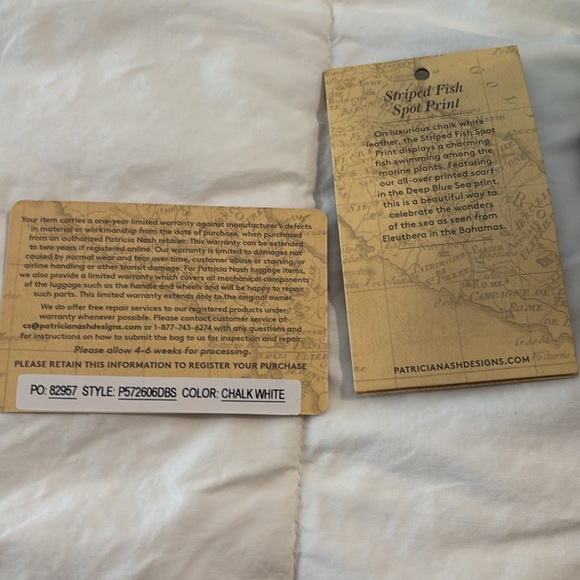 Your item carries a one-year limited warranty against manufacturer's defects
in material or workmanship from the date of purchase, when purchased
from an authorized Patricia Nash retailer. This warranty can be extended
to two years if registered online. Our warranty is limited to damages not
caused by normal wear and tear over time, customer abuse or staining/or
airline handling or other transit damage. For Patricia Nash luggage items,
we also provide a limited warranty which covers all mechanical components
of the luggage such as the handle and wheels and will be happy to repair
such parts. This limited warranty extends only to the original owner.
We do offer free repair services to our registered products under
warranty whenever possible. Please contact customer service at
cs@patricianashdesigns.com or 1-877-743-6274 with any questions and
for instructions on how to submit the bag to us for inspection and repair.
Please allow 4-6 weeks for processing.
PLEASE RETAIN THIS INFORMATION TO REGISTER YOUR PURCHASE
PO: 82957 STYLE: P572606DBS COLOR: CHALK WHITE
Striped Fish
Spot Print
On luxurious chalk white
leather, the Striped Fish Spot
Print displays a charming
fish swimming among the
marine plants. Featuring
our all-over printed scarf
in the Deep Blue Sea print,
this is a beautiful way to
celebrate the wonders
of the sea as seen from
Eleuthera in the Bahamas.
PATRICIANASHDESIGNS.COM